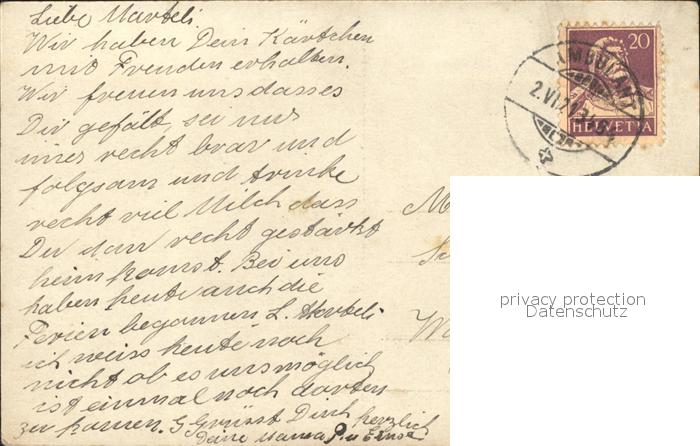 Liebe Marteli
Wir haben Dein Kärtchen
mit Freuden erhalten.
Wir freuen uns dass es
Dir gefält, sei nur
imer recht brav und
folgsam und trinke
recht viel Milch dass
Du dan recht gestärkt
heim komst. Bei uns
haben heute auch die
Ferien begonnen L. Marteli
ich weiss heute noch
nicht ob es uns möglich
ist einmal noch dorten
zu komen. Es Grüsst Dich herzlich
Deine Mama P. u Ernst
20
HELVETIA
AMBULANT
2.VI
M
W
privacy protection
Datenschutz